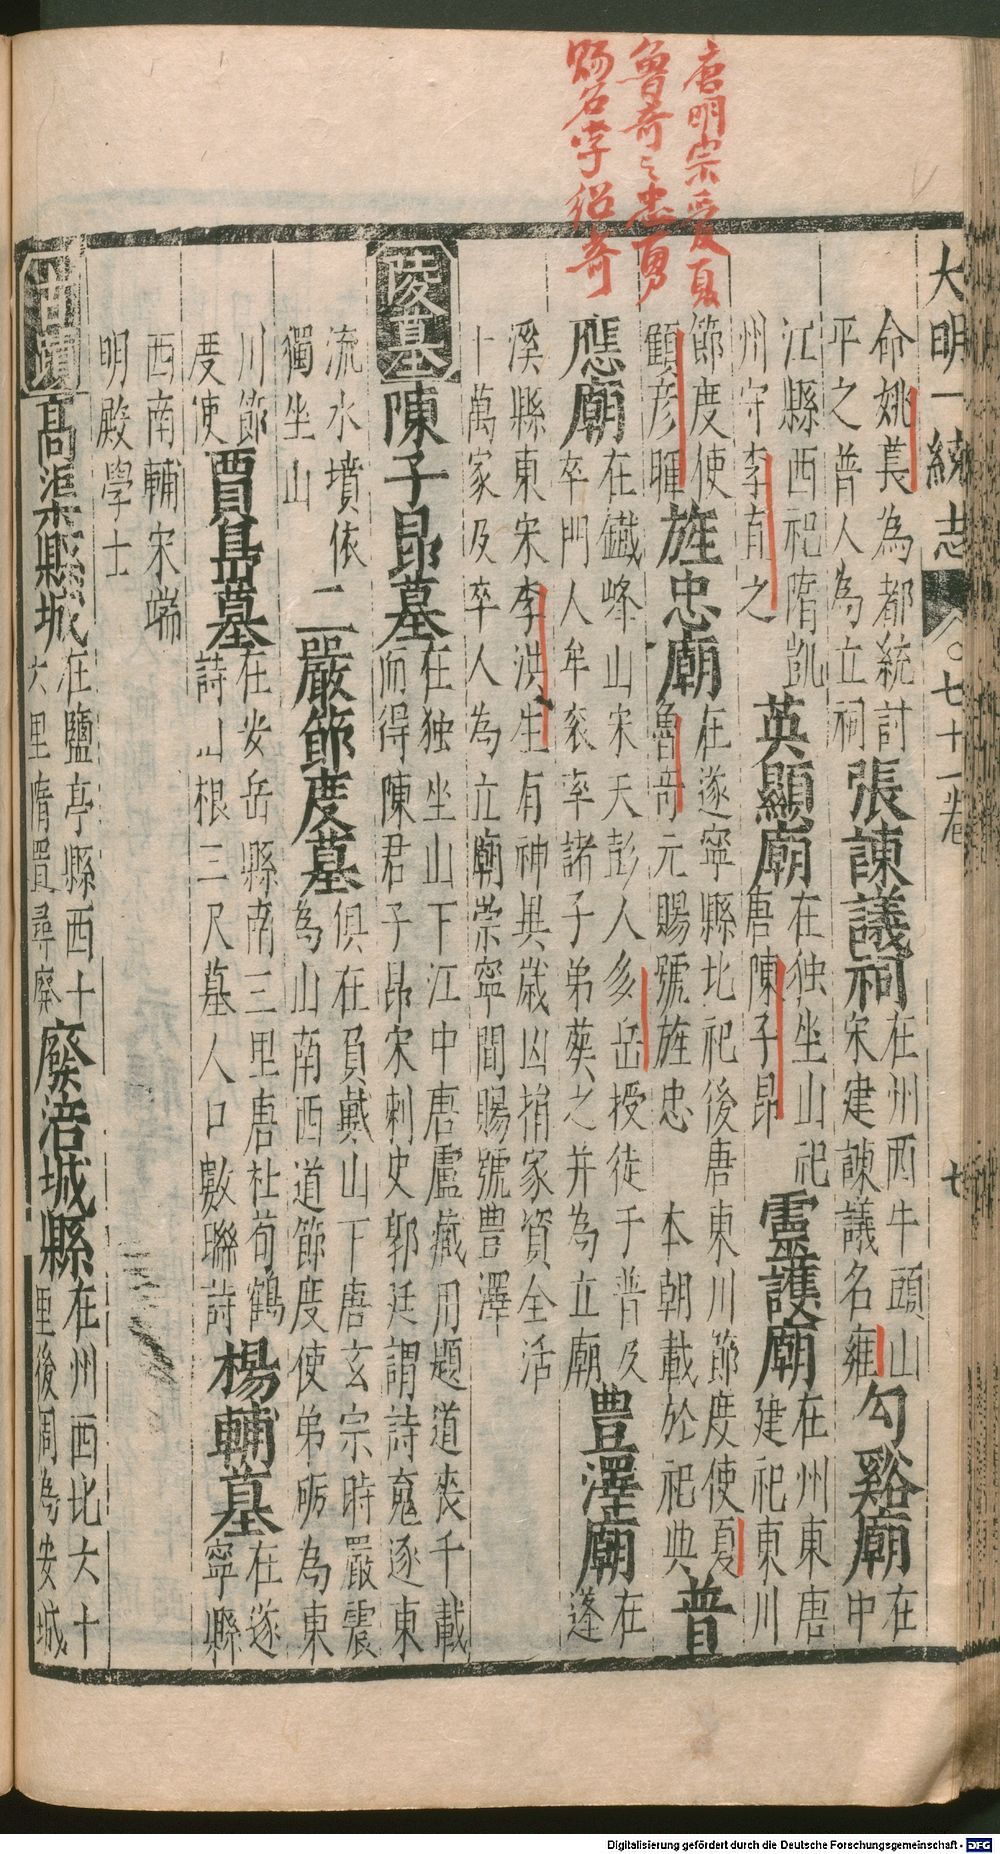 唐明宗愛夏
魯奇之忠勇
賜名李紹奇
大明一統志 〇七十一卷 七
命姚萇為都統討
平之普人為立祠
張諫議祠
在州西牛頭山
宋建諫議名雍
勾谿廟
在
中
江縣西祀隋凱
州守李育之
英顯廟
在独坐山祀
唐陳子昂
靈護廟
在州東唐
建祀東川
節度使
顧彦暉
旌忠廟
在遂寧縣北祀後唐東川節度使夏
魯奇元賜號旌忠 本朝載於祀典
普
應廟
在鐵峰山宋天彭人彖岳授徒于普及
卒門人牟衮率諸子弟葬之并為立廟
豊澤廟
在
蓬
溪縣東宋李洪生有神異歲凶捐家資全活
十萬家及卒人為立廟崇寧間賜號豊澤
陵墓
陳子昂墓
在独坐山下江中唐盧藏用題道喪千載
而得陳君子昂宋刺史郭廷謂詩䰟逐東
流水墳依
獨坐山
二嚴節度墓
俱在負戴山下唐玄宗時嚴震
為山南西道節度使弟砺為東
川節
度使
賈島墓
在安岳縣南三里唐杜荀鶴
詩山根三尺墓人口數聯詩
楊輔墓
在遂
寧縣
西南輔宋端
明殿學士
古蹟
高渠縣城
在鹽亭縣西十
六里隋置尋廢
廢涪城縣
在州西北六十
里後周為安城
Digitalisierung gefördert durch die Deutsche Forschungsgemeinschaft - DFG